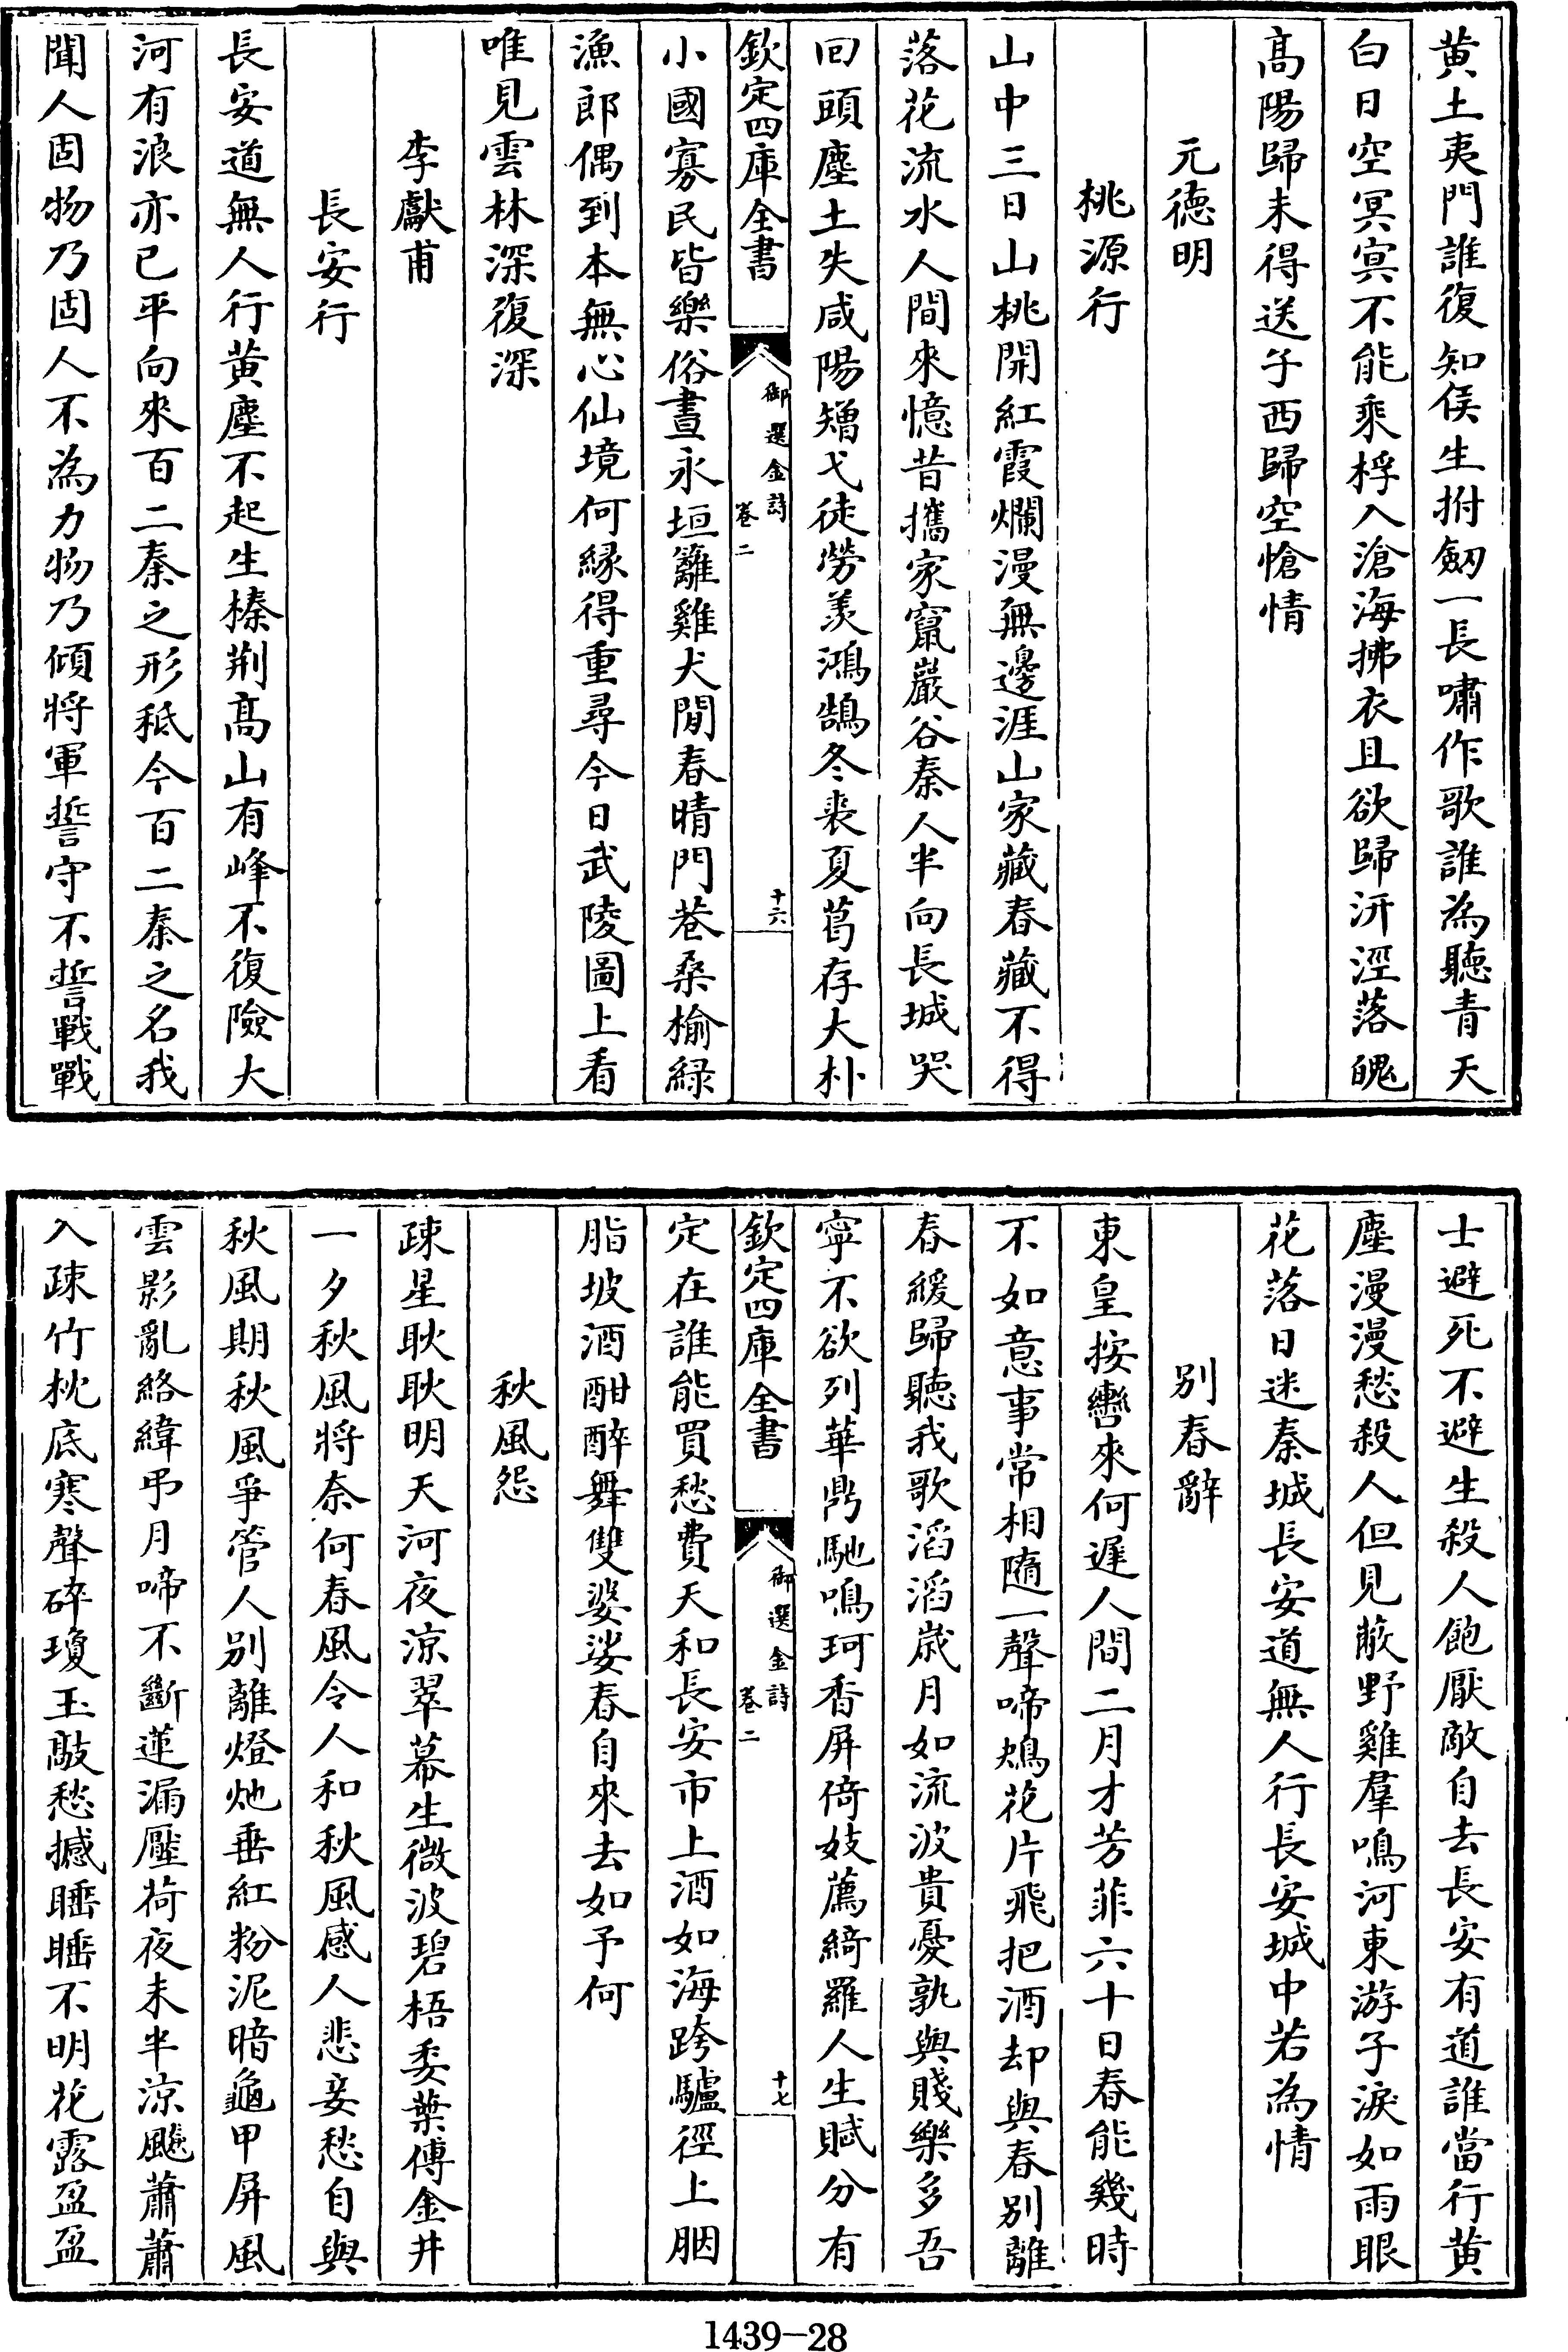 黄土夷門誰復知侯生拊劒一長嘯作歌誰為聽青天
白日空冥冥不能乘桴入滄海拂衣且欲歸汧涇落魄
髙陽歸未得送子西歸空愴情
元徳明
桃源行
山中三日山桃開紅霞爛漫無邊涯山家藏春藏不得
落花流水人間來憶昔攜家竄巖谷秦人半向長城哭
回頭塵土失咸陽矰弋徒勞羨鴻鵠冬裘夏葛存大朴
欽定四庫全書
御選金詩
卷二
十六
小國寡民皆樂俗晝永垣籬雞犬閒春晴門巷桑榆緑
漁郎偶到本無心仙境何縁得重尋今日武陵圖上看
唯見雲林深復深
李獻甫
長安行
長安道無人行黄塵不起生榛荆髙山有峰不復險大
河有浪亦已平向來百二秦之形秪今百二秦之名我
聞人固物乃固人不為力物乃傾將軍誓守不誓戰戰
士避死不避生殺人飽厭敵自去長安有道誰當行黄
塵漫漫愁殺人但見蔽野雞羣鳴河東游子淚如雨眼
花落日迷秦城長安道無人行長安城中若為情
别春辭
東皇按轡來何遲人間二月才芳菲六十日春能幾時
不如意事常相隨一聲啼鴂花片飛把酒却與春别離
春緩歸聽我歌滔滔嵗月如流波貴憂孰與賤樂多吾
寧不欲列華鼎馳鳴珂香屏倚妓薦綺羅人生賦分有
欽定四庫全書
御選金詩
卷二
十七
定在誰能買愁費天和長安市上酒如海跨驢徑上胭
脂坡酒酣醉舞雙婆娑春自來去如予何
秋風怨
疎星耿耿明天河夜涼翠幕生微波碧梧委葉傅金井
一夕秋風將奈何春風令人和秋風感人悲妾愁自與
秋風期秋風爭管人别離燈灺垂紅粉泥暗龜甲屏風
雲影亂絡緯弔月啼不斷蓮漏壓荷夜未半涼飈蕭蕭
入疎竹枕底寒聲碎瓊玉敲愁撼睡睡不明花露盈盈
1439—28